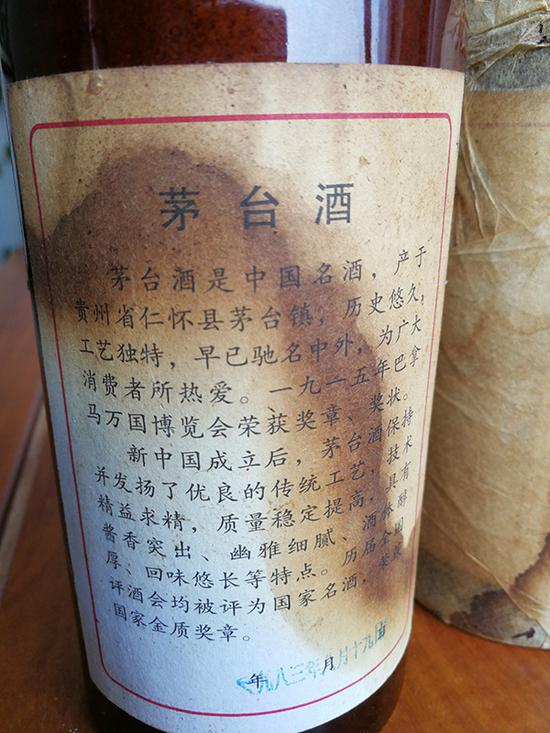 茅台酒
茅台酒是中国名酒，产于
贵州省仁怀县茅台镇，历史悠久，
工艺独特，早已驰名中外，为广大
消费者所热爱。一九一五年巴拿
马万国博览会荣获奖章、奖状。
新中国成立后，茅台酒保持
并发扬了优良的传统工艺，技术
精益求精，质量稳定提高，具有
酱香突出、幽雅细腻、酒体醇
厚、回味悠长等特点。历届全国
评酒会均被评为国家名酒，荣获
国家金质奖章。
年 月
九八三年 月十九